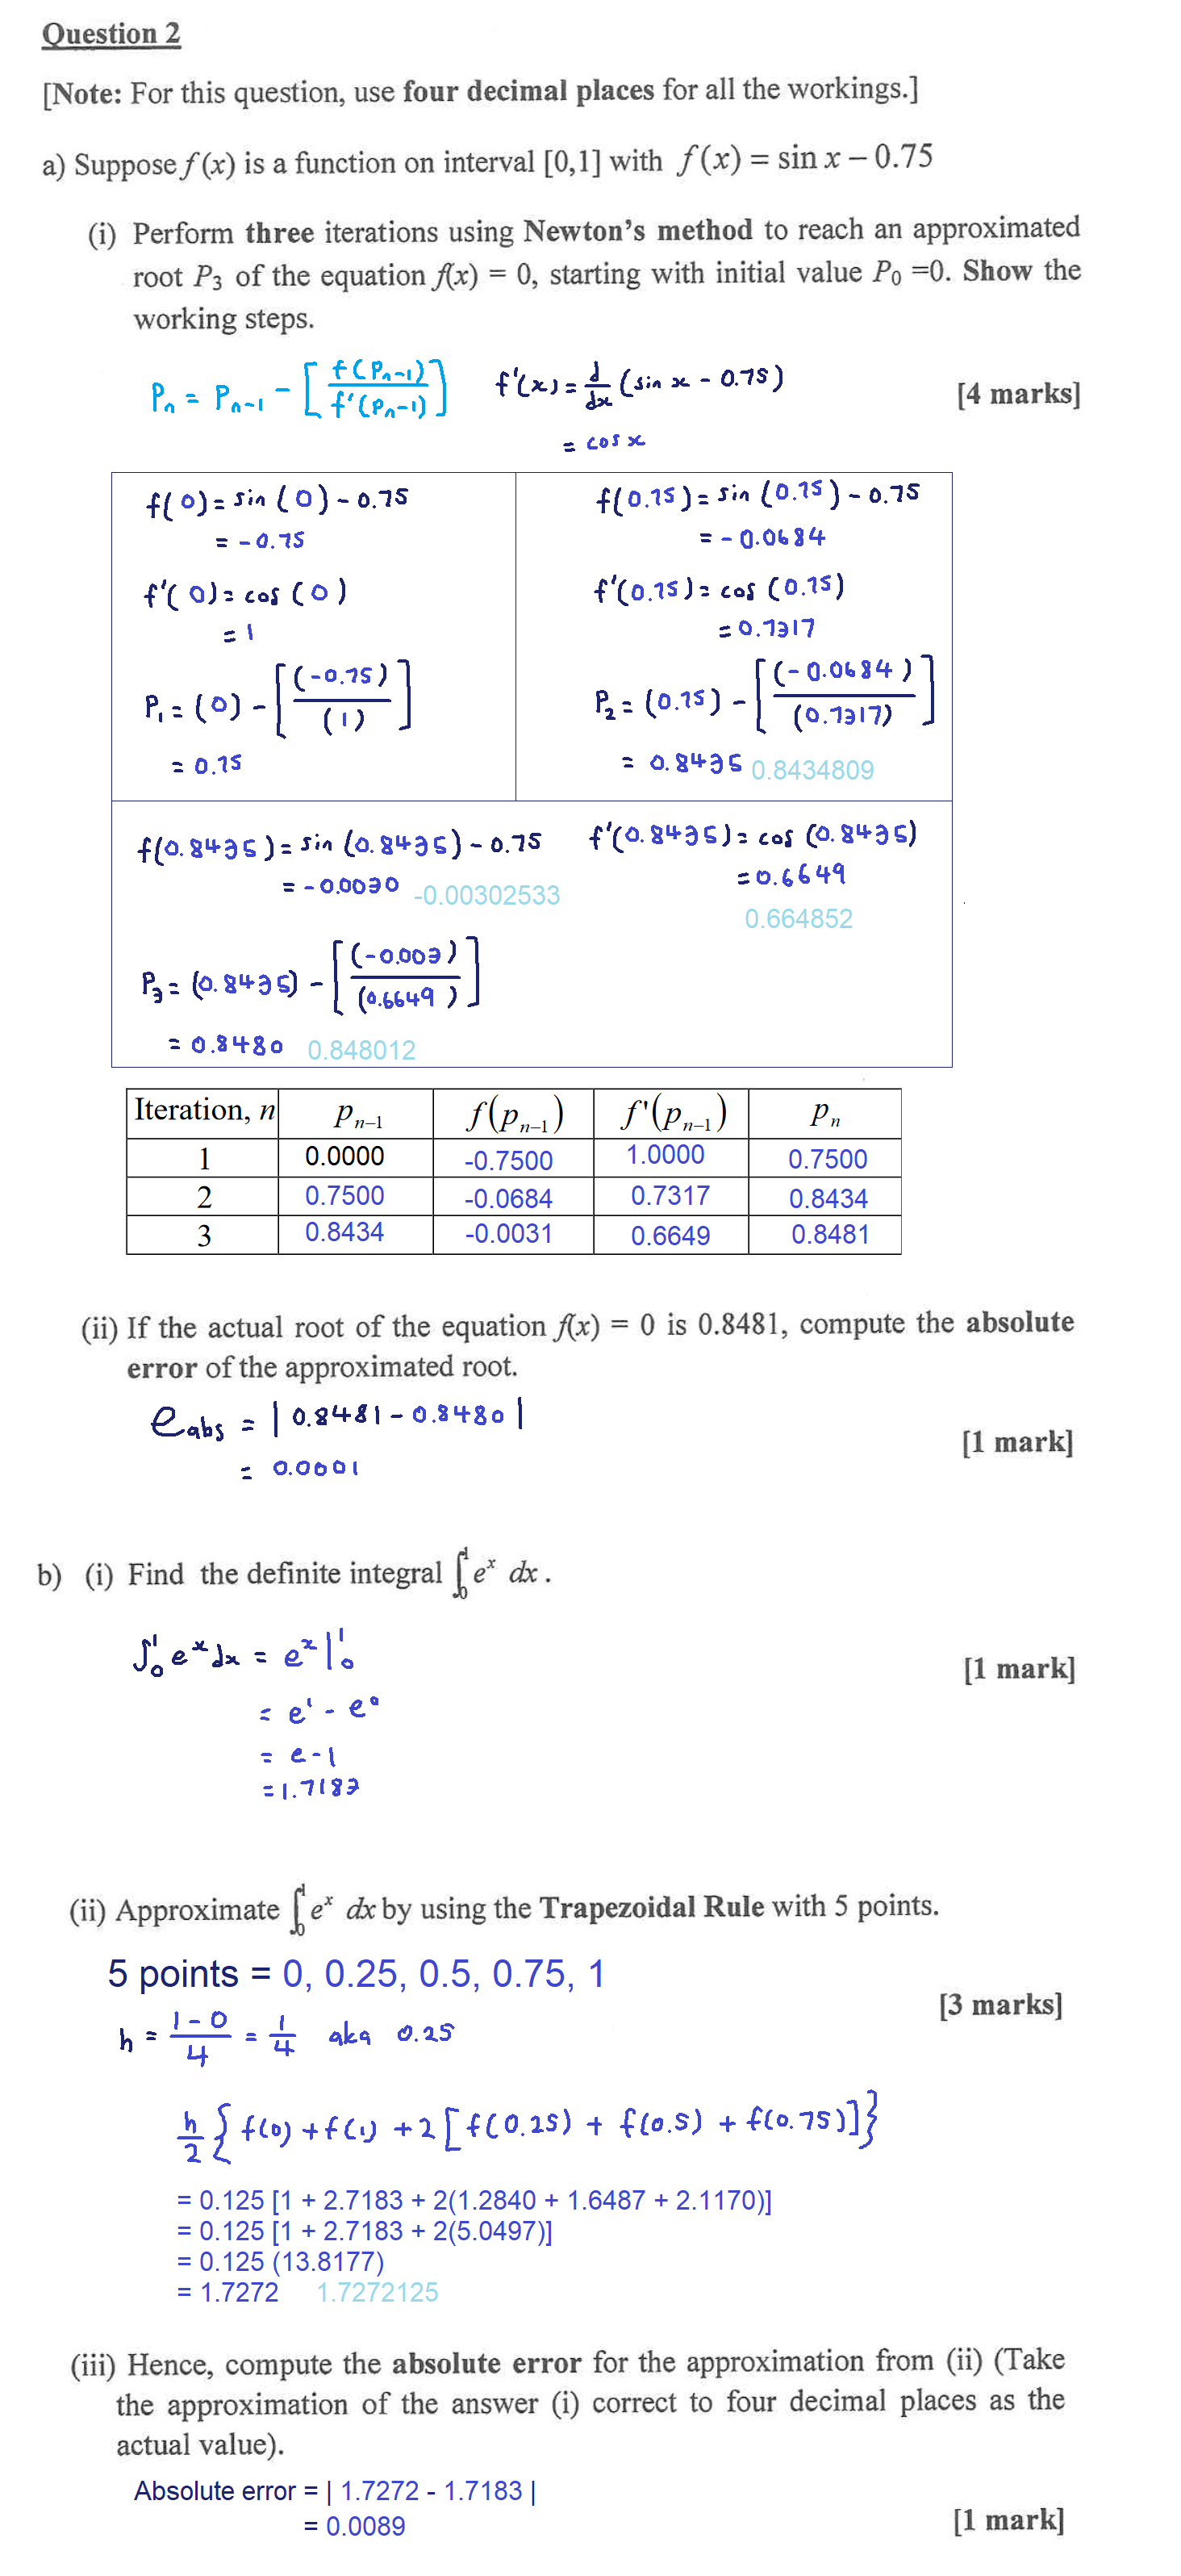 Question 2
[Note: For this question, use four decimal places for all the workings.]
a) Suppose f (x) is a function on interval [0,1] with f (x) = sin x – 0.75
(i) Perform three iterations using Newton's method to reach an approximated
root P₃ of the equation f(x) = 0, starting with initial value P₀ =0. Show the
working steps.
Pₙ = Pₙ₋₁ - [ f(Pₙ₋₁) / f'(Pₙ₋₁) ] f'(x) = d/dx (sin x - 0.75)
[4 marks]
= cos x
f(0) = sin (0) - 0.75
= - 0.75
f'(0) = cos (0)
= 1
P₁ = (0) - [ (-0.75) / (1) ]
= 0.75
f(0.75) = sin (0.75) - 0.75
= - 0.0684
f'(0.75) = cos (0.75)
= 0.7317
P₂ = (0.75) - [ (-0.0684) / (0.7317) ]
= 0.8435 0.8434809
f(0.8435) = sin (0.8435) - 0.75 f'(0.8435) = cos (0.8435)
= - 0.0030 -0.00302533 = 0.6649
0.664852
P₃ = (0.8435) - [ (-0.003) / (0.6649) ]
= 0.8480 0.848012
Iteration, n pₙ₋₁ f(pₙ₋₁) f'(pₙ₋₁) pₙ
1 0.0000 -0.7500 1.0000 0.7500
2 0.7500 -0.0684 0.7317 0.8434
3 0.8434 -0.0031 0.6649 0.8481
(ii) If the actual root of the equation f(x) = 0 is 0.8481, compute the absolute
error of the approximated root.
e_abs = | 0.8481 - 0.8480 |
[1 mark]
= 0.0001
b) (i) Find the definite integral ∫₀¹ eˣ dx .
∫₀¹ eˣ dx = eˣ |₀¹
[1 mark]
= e¹ - e⁰
= e - 1
= 1.7183
(ii) Approximate ∫₀¹ eˣ dx by using the Trapezoidal Rule with 5 points.
5 points = 0, 0.25, 0.5, 0.75, 1
[3 marks]
h = (1 - 0)/4 = 1/4 aka 0.25
h/2 { f(0) + f(1) + 2 [ f(0.25) + f(0.5) + f(0.75) ] }
= 0.125 [1 + 2.7183 + 2(1.2840 + 1.6487 + 2.1170)]
= 0.125 [1 + 2.7183 + 2(5.0497)]
= 0.125 (13.8177)
= 1.7272 1.7272125
(iii) Hence, compute the absolute error for the approximation from (ii) (Take
the approximation of the answer (i) correct to four decimal places as the
actual value).
Absolute error = | 1.7272 - 1.7183 |
= 0.0089
[1 mark]